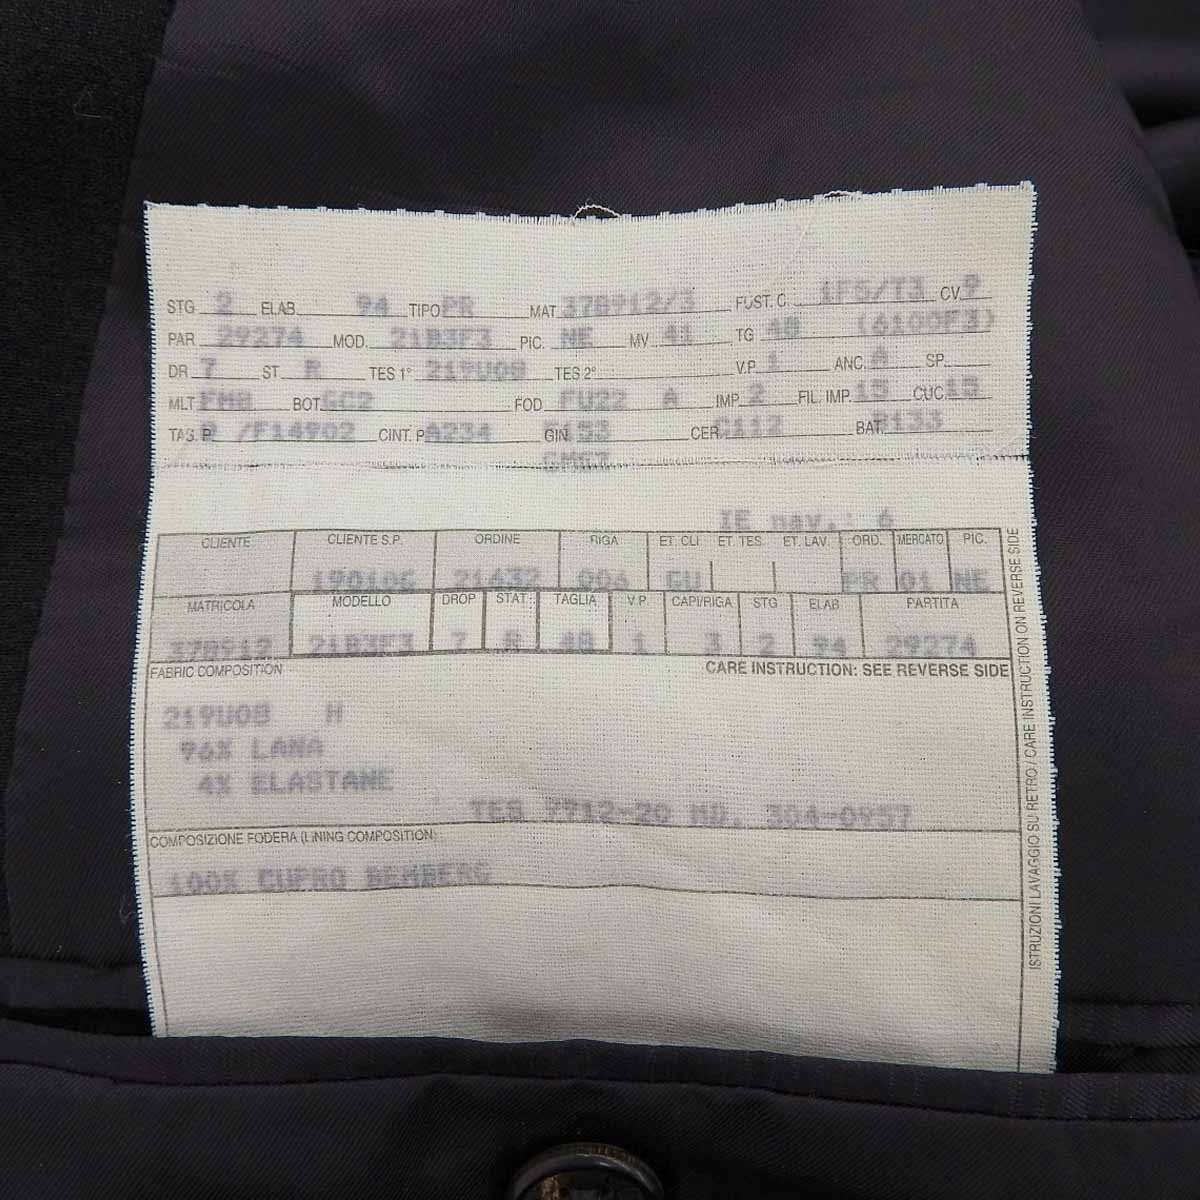 STG 2 ELAB. 94 TIPO PR MAT 378912/3 FUST. C. 1F5/T3 CV 9
PAR 29274 MOD. 21B3F3 PIC. NE MV 41 TG 48 (6100F3)
DR 7 ST R TES 1° 219U08 TES 2° V.P. 1 ANC. A SP.
MLT FM8 BOT GC2 FOD FU22 A IMP. 2 FIL. IMP. 15 CUC. 15
TAS. P. /F14902 CINT. P. A234 GIN CER. C112 BAT.
IE nav.: 6
CLIENTE CLIENTE S.P. ORDINE RIGA ET. CLI ET. TES. ET. LAV. ORD. MERCATO PIC.
190106 21632 006 GU PR 01 NE
MATRICOLA MODELLO DROP STAT. TAGLIA V.P CAPI/RIGA STG ELAB PARTITA
378912 21B3F3 7 R 48 1 3 2 94 29274
FABRIC COMPOSITION CARE INSTRUCTION: SEE REVERSE SIDE
219U08 H
96% LANA
4% ELASTANE
TES 7712-20 MD. 304-0957
COMPOSIZIONE FODERA (LINING COMPOSITION)
100% CUPRO BEMBERG
ISTRUZIONI LAVAGGIO SU RETRO / CARE INSTRUCTION ON REVERSE SIDE